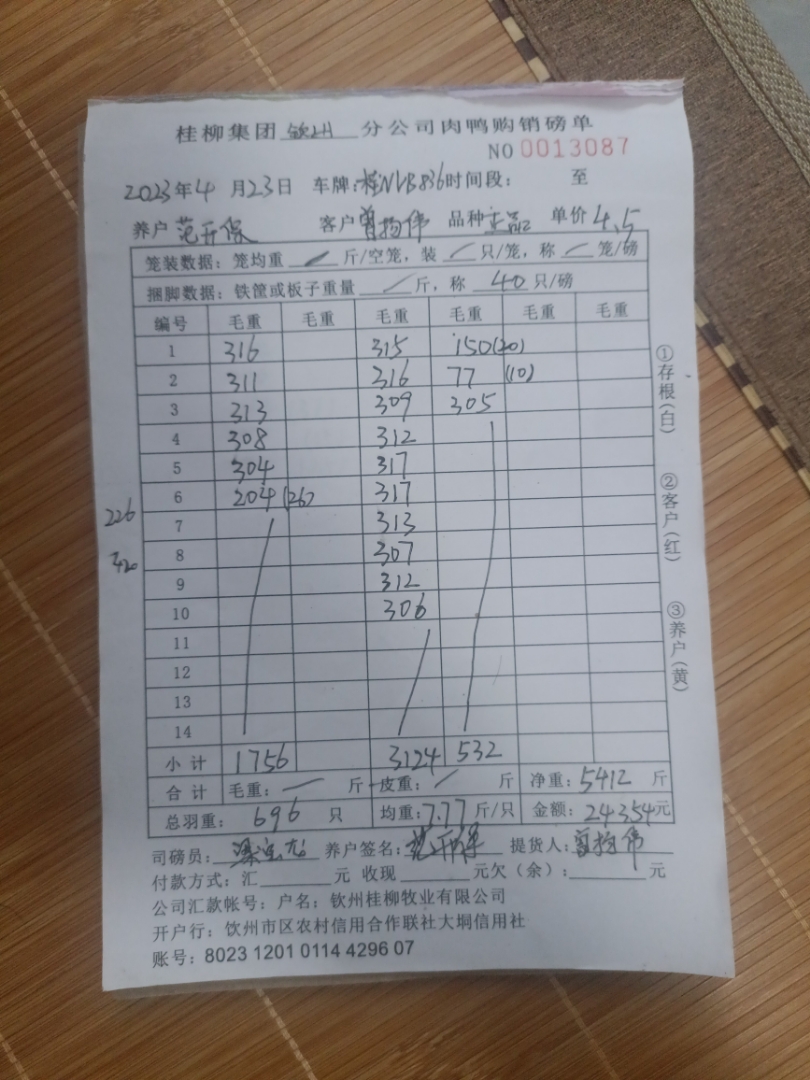 桂柳集团 钦州 分公司肉鸭购销磅单
NO 0013087
2023年4月23日 车牌:桂NVB836 时间段: 至
养户 范开保 客户 曾扬伟 品种 单价 4.5
笼装数据: 笼均重 / 斤/空笼, 装 / 只/笼, 称 / 笼/磅
捆脚数据: 铁筐或板子重量 / 斤, 称 40 只/磅
编号 毛重 毛重 毛重 毛重 毛重 毛重
1 316 315 150(20)
2 311 316 77 (10)
3 313 309 305
4 308 312
5 304 317
6 204 (26) 317
226
7 313
320
8 307
9 312
10 306
11
12
13
14
小计 1756 3124 532
合计 毛重: / 斤 皮重: / 斤 净重: 5412 斤
总羽重: 696 只 均重: 7.77 斤/只 金额: 24354元
司磅员: 养户签名: 范开保 提货人: 曾扬伟
付款方式: 汇 元 收现 元欠(余): 元
公司汇款帐号: 户名: 钦州桂柳牧业有限公司
开户行: 钦州市区农村信用合作联社大垌信用社
账号: 8023 1201 0114 4296 07
①存根(白)
②客户(红)
③养户(黄)